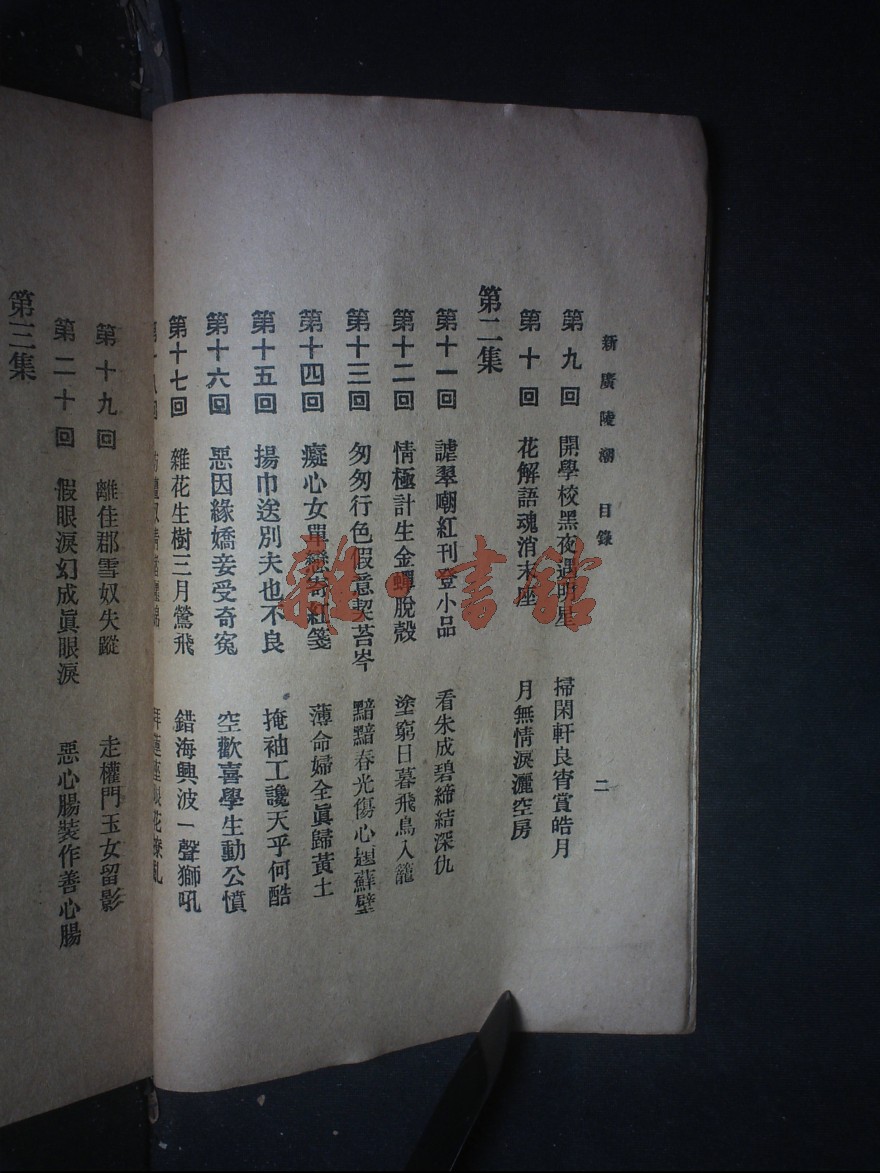 新廣陵潮 目錄
二
第九回 開學校黑夜遇明星 掃閑軒良宵賞皓月
第十回 花解語魂消末座 月無情淚灑空房
第二集
第十一回 謔翠嘲紅刊登小品 看朱成碧締結深仇
第十二回 情極計生金蟬脫殼 塗窮日暮飛鳥入籠
第十三回 匆匆行色假意契苔岑 黯黯春光傷心題蘇壁
第十四回 癡心女單戀寄紅箋 薄命婦全眞歸黃土
第十五回 揚巾送別夫也不良 掩袖工讒天乎何酷
第十六回 惡因緣嬌妾受奇寃 空歡喜學生動公憤
第十七回 雜花生樹三月鶯飛 錯海興波一聲獅吼
第十八回
第十九回 離佳郡雪奴失蹤 走權門玉女留影
第二十回 假眼淚幻成眞眼淚 惡心腸裝作善心腸
第三集
雜·書館